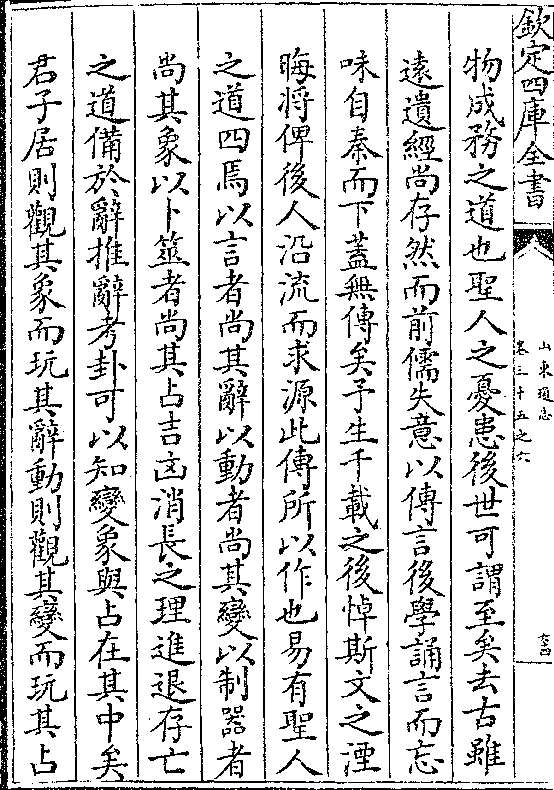 欽定四庫全書
山東通志
卷三十五之六
物成務之道也聖人之憂患後世可謂至矣去古雖
遠遺經尚存然而前儒失意以傳言後學誦言而忘
味自秦而下蓋無傳矣予生千載之後悼斯文之湮
晦將俾後人沿流而求源此傳所以作也易有聖人
之道四焉以言者尚其辭以動者尚其變以制器者
尚其象以卜筮者尚其占吉凶消長之理進退存亡
之道備於辭推辭考卦可以知變象與占在其中矣
君子居則觀其象而玩其辭動則觀其變而玩其占